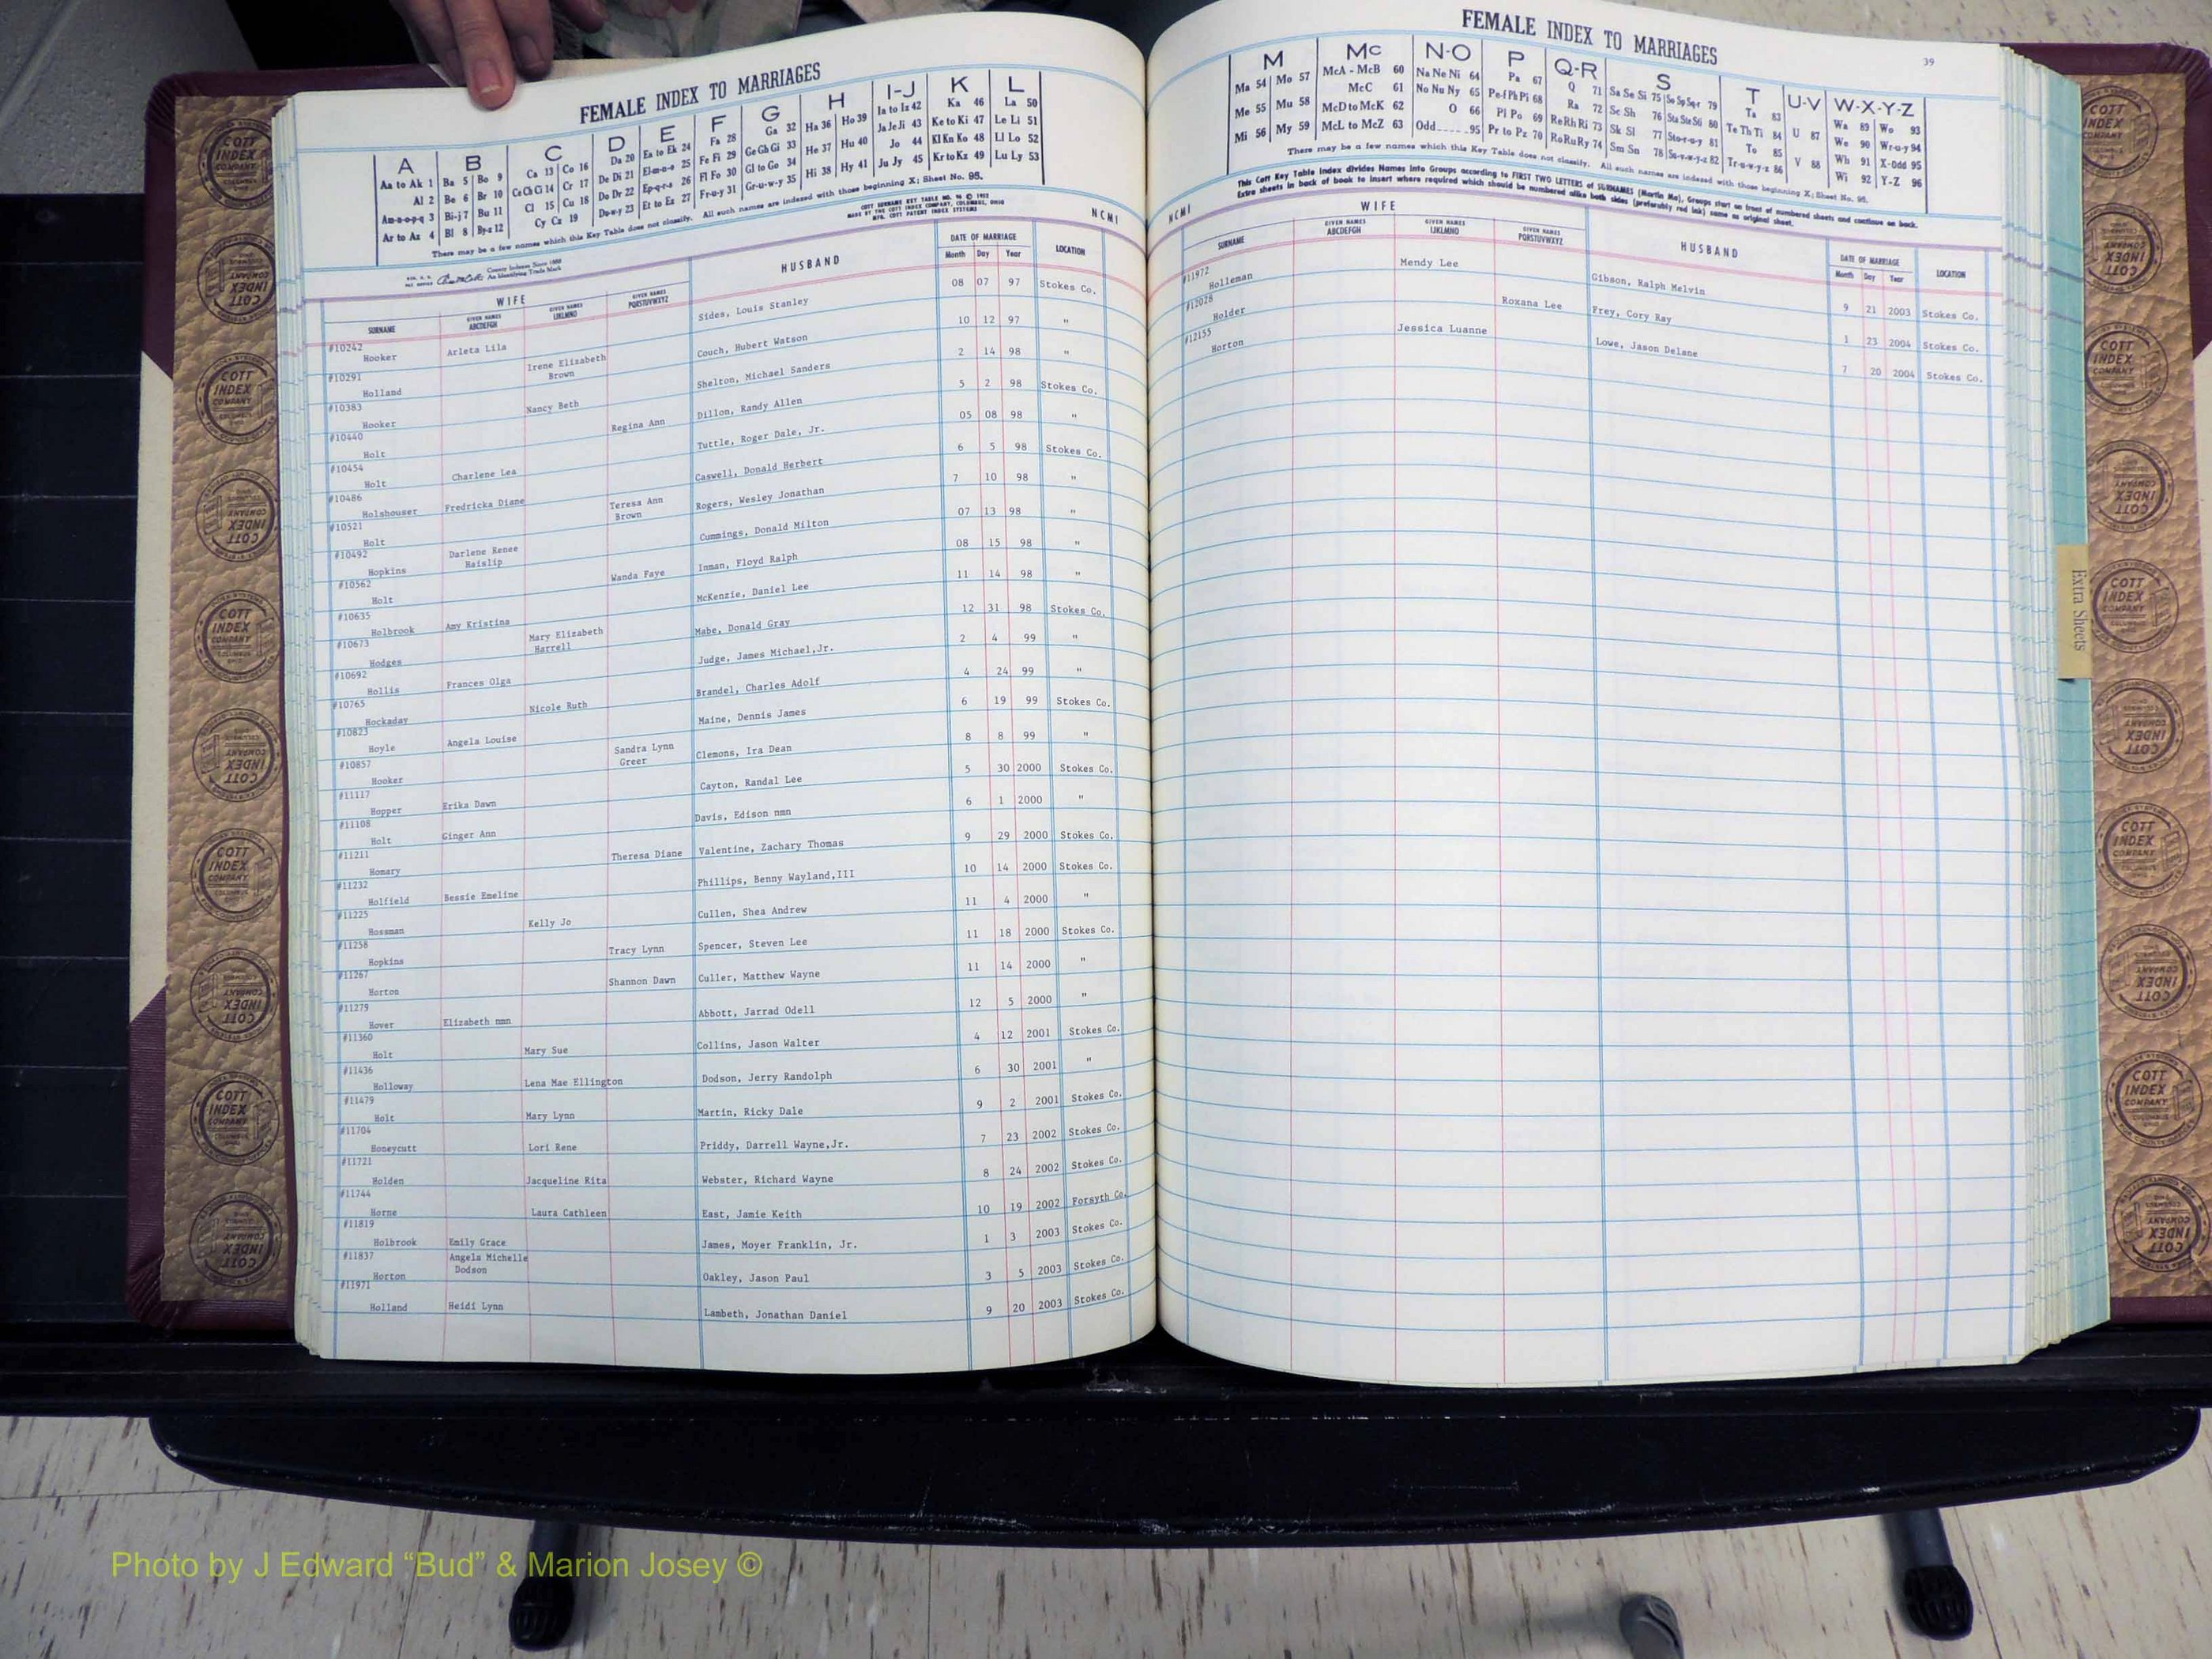 FEMALE INDEX TO MARRIAGES
A B C D E F G H I-J K L
Aa to Ak 1 Ba 5 Bo 9 Ca 13 Co 16 Da 20 Ea to Ek 24 Fa 28 Ga 32 Ha 36 Ho 39 Ia to Iz 42 Ka 46 La 50
Al 2 Be 6 Br 10 Ce Ch Ci 14 Cr 17 De Di 21 El-m-n-o 25 Fe Fi 29 Ge Gh Gi 33 He 37 Hu 40 Ja Je Ji 43 Ke to Ki 47 Le Li 51
Am-n-o-p-q 3 Bi-j 7 Bu 11 Cl 15 Cu 18 Do Dr 22 Ep-q-r-s 26 Fl Fo 30 Gl to Go 34 Hi 38 Hy 41 Jo 44 Kl Kn Ko 48 Ll Lo 52
Ar to Az 4 Bl 8 By-z 12 Cy Cz 19 Du-w-y 23 Et to Ez 27 Fr-u-y 31 Gr-u-w-y 35 Ju Jy 45 Kr to Kz 49 Lu Ly 53
There may be a few names which this Key Table does not classify. All such names are indexed with those beginning X; Sheet No. 95.
COTT SURNAME KEY TABLE
MADE BY THE COTT INDEX COMPANY, COLUMBUS, OHIO
NCMI
County Indexes Since 1888
An Identifying Trade Mark
WIFE HUSBAND DATE OF MARRIAGE LOCATION
SURNAME GIVEN NAMES ABCDEFGH GIVEN NAMES IJKLMNO GIVEN NAMES PQRSTUVWXYZ Month Day Year
#10242 Hooker Arleta Lila Sides, Louis Stanley 08 07 97 Stokes Co.
#10291 Holland Irene Elizabeth Brown Couch, Hubert Watson 10 12 97 "
#10383 Hooker Nancy Beth Shelton, Michael Sanders 2 14 98 "
#10440 Holt Regina Ann Dillon, Randy Allen 5 2 98 Stokes Co.
#10454 Holt Charlene Lea Tuttle, Roger Dale, Jr. 05 08 98 "
#10486 Holshouser Fredricka Diane Caswell, Donald Herbert 6 5 98 Stokes Co.
#10521 Holt Teresa Ann Brown Rogers, Wesley Jonathan 7 10 98 "
#10492 Hopkins Darlene Renee Haislip Cummings, Donald Milton 07 13 98 "
#10562 Holt Wanda Faye Inman, Floyd Ralph 08 15 98 "
#10635 Holbrook Amy Kristina McKenzie, Daniel Lee 11 14 98 "
#10673 Hodges Mary Elizabeth Harrell Mabe, Donald Gray 12 31 98 Stokes Co.
#10692 Hollis Frances Olga Judge, James Michael,Jr. 2 4 99 "
#10765 Hockaday Nicole Ruth Brandel, Charles Adolf 4 24 99 "
#10823 Hoyle Angela Louise Maine, Dennis James 6 19 99 Stokes Co.
#10857 Hooker Sandra Lynn Greer Clemons, Ira Dean 8 8 99 "
#11117 Hopper Erika Dawn Cayton, Randal Lee 5 30 2000 Stokes Co.
#11108 Holt Ginger Ann Davis, Edison nmn 6 1 2000 "
#11211 Homary Theresa Diane Valentine, Zachary Thomas 9 29 2000 Stokes Co.
#11232 Holfield Bessie Emeline Phillips, Benny Wayland,III 10 14 2000 Stokes Co.
#11225 Hossman Kelly Jo Cullen, Shea Andrew 11 4 2000 "
#11258 Hopkins Tracy Lynn Spencer, Steven Lee 11 18 2000 Stokes Co.
#11267 Horton Shannon Dawn Culler, Matthew Wayne 11 14 2000 "
#11279 Hover Elizabeth nmn Abbott, Jarrad Odell 12 5 2000 "
#11360 Holt Mary Sue Collins, Jason Walter 4 12 2001 Stokes Co.
#11436 Holloway Lena Mae Ellington Dodson, Jerry Randolph 6 30 2001 "
#11479 Holt Mary Lynn Martin, Ricky Dale 9 2 2001 Stokes Co.
#11704 Honeycutt Lori Rene Priddy, Darrell Wayne,Jr. 7 23 2002 Stokes Co.
#11721 Holden Jacqueline Rita Webster, Richard Wayne 8 24 2002 Stokes Co.
#11744 Horne Laura Cathleen East, Jamie Keith 10 19 2002 Forsyth Co.
#11819 Holbrook Emily Grace James, Moyer Franklin, Jr. 1 3 2003 Stokes Co.
#11837 Horton Angela Michelle Dodson Oakley, Jason Paul 3 5 2003 Stokes Co.
#11971 Holland Heidi Lynn Lambeth, Jonathan Daniel 9 20 2003 Stokes Co.
FEMALE INDEX TO MARRIAGES 39
M Mc N-O P Q-R S T U-V W-X-Y-Z
Ma 54 Mo 57 McA - McB 60 Na Ne Ni 64 Pa 67 Q 71 Sa Se Si 75 So Sp Sq-r 79 Ta 83 U 87 Wa 89 Wo 93
Me 55 Mu 58 McC 61 No Nu Ny 65 Pe-f Ph Pi 68 Ra 72 Sc Sh 76 Sta Ste Sti 80 Te Th Ti 84 V 88 We 90 Wr-u-y 94
Mi 56 My 59 McD to McK 62 O 66 Pl Po 69 Re Rh Ri 73 Sk Sl 77 Sto-r-u-y 81 To 85 Wh 91 X-Odd 95
McL to McZ 63 Odd 95 Pr to Pz 70 Ro Ru Ry 74 Sm Sn 78 Su-v-w-y-z 82 Tr-u-w-y-z 86 Wi 92 Y-Z 96
There may be a few names which this Key Table does not classify. All such names are indexed with those beginning X; Sheet No. 95.
This Cott Key Table Index divides Names into Groups according to FIRST TWO LETTERS of SURNAMES (Martin Ma), Groups start on front of numbered sheets and continue on back.
Extra sheets in back of book to insert where required which should be numbered alike both sides (preferably red ink) same as original sheet.
NCMI
WIFE HUSBAND DATE OF MARRIAGE LOCATION
SURNAME GIVEN NAMES ABCDEFGH GIVEN NAMES IJKLMNO GIVEN NAMES PQRSTUVWXYZ Month Day Year
#11972 Holleman Mendy Lee Gibson, Ralph Melvin 9 21 2003 Stokes Co.
#12028 Holder Roxana Lee Frey, Cory Ray 1 23 2004 Stokes Co.
#12155 Horton Jessica Luanne Lowe, Jason Delane 7 20 2004 Stokes Co.
Extra Sheets
COTT INDEX COMPANY
Photo by J Edward “Bud” & Marion Josey ©